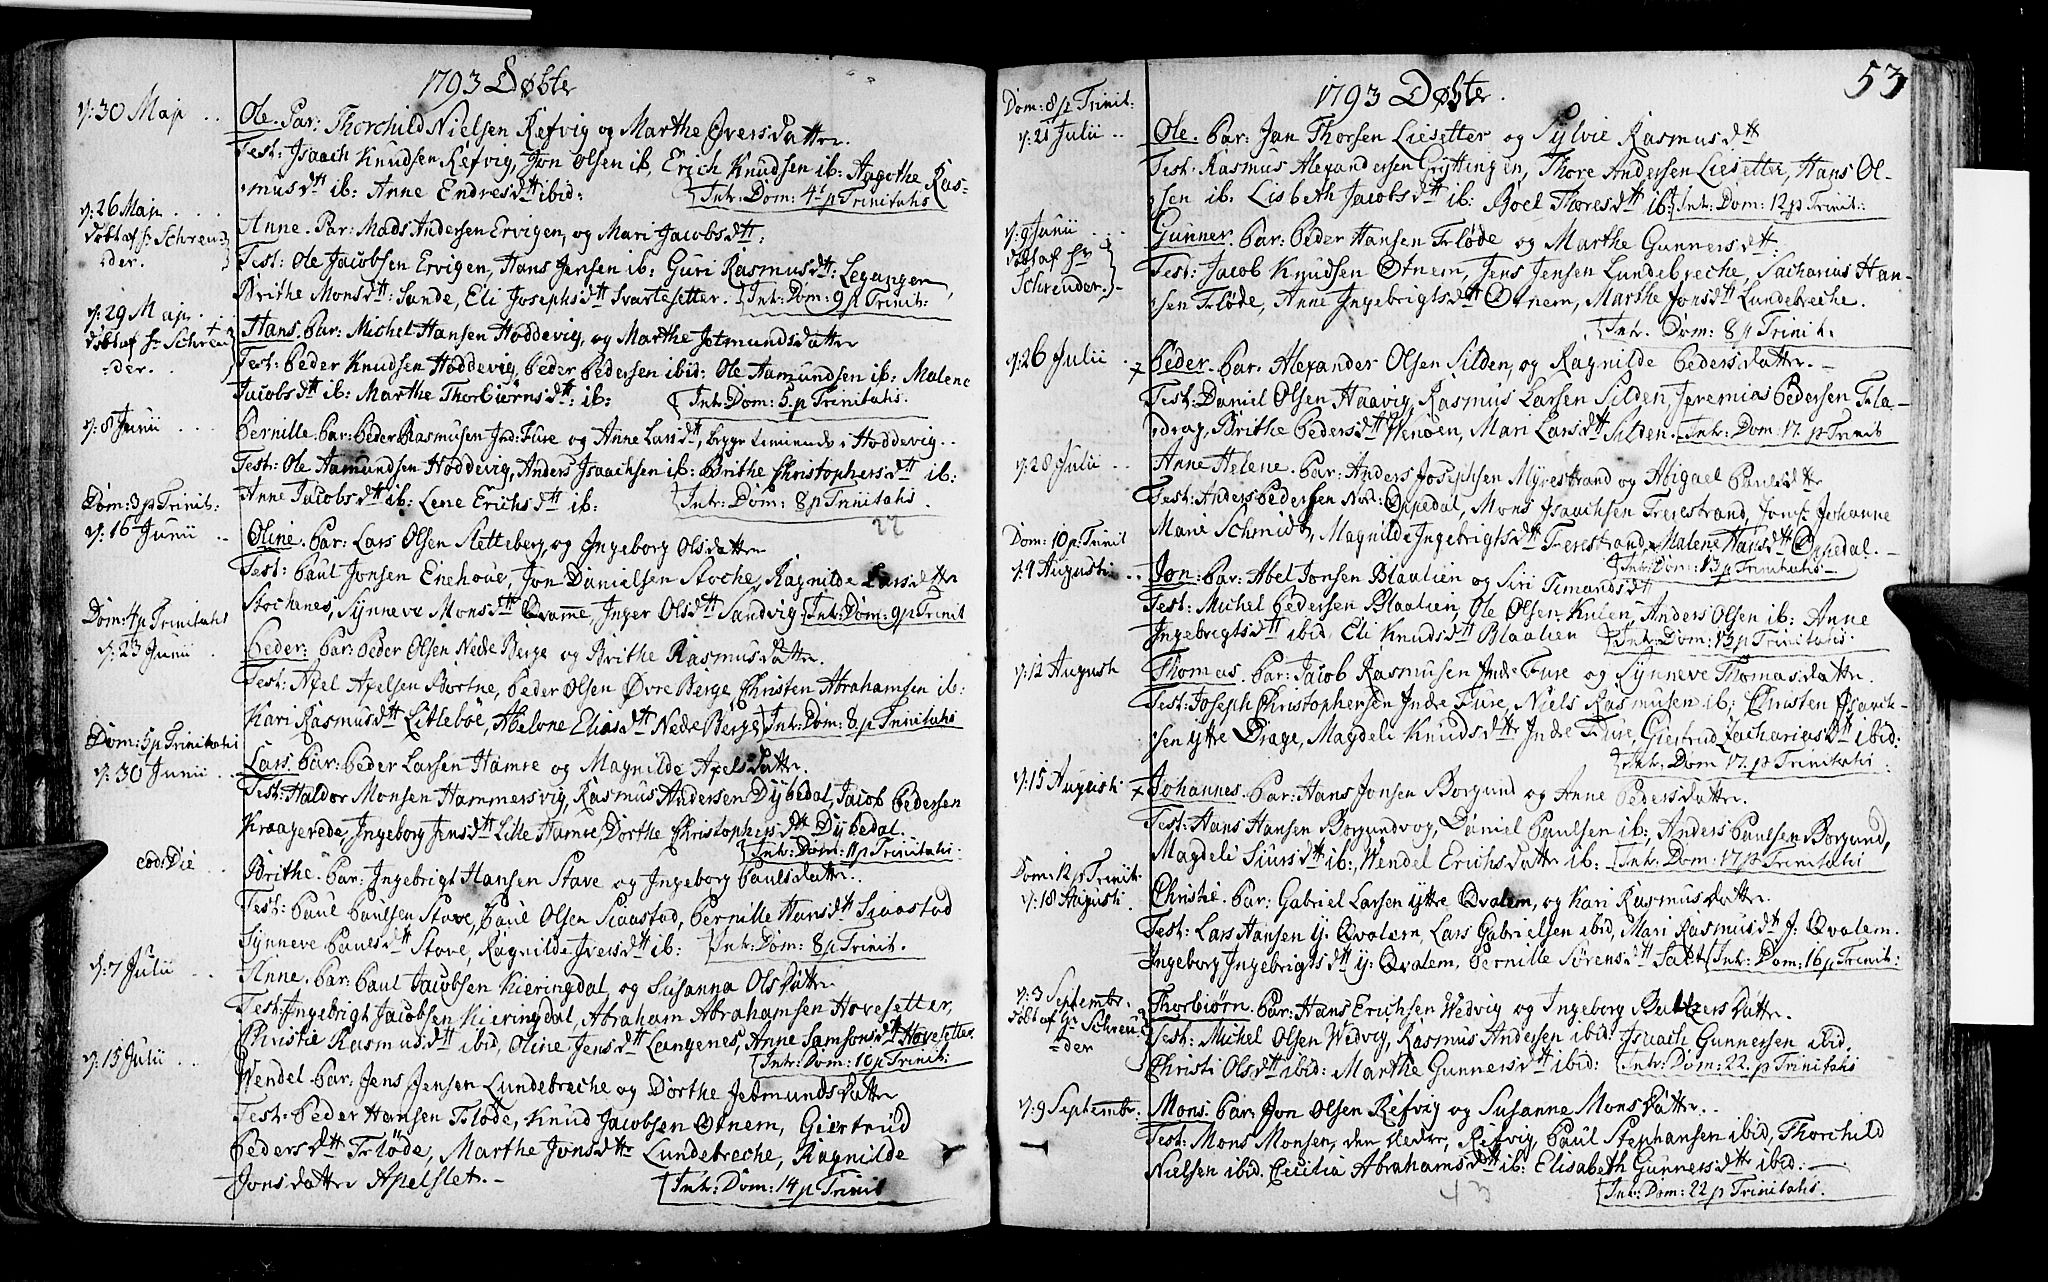 1793 Døbte
d: 30 Maj Ole. Par: Thorchild Nielsen Refvig og Marthe Iversdatter.
Test: Isaach Knudsen Refvig, Jon Olsen ib, Erich Knudsen ib: Aagothe Ras-
musdtt ib: Anne Endresdtt ibid: Intr: Dom: 4 p Trinitatis
d: 26 Maj Anne. Par: Mads Andersen Ervigen, og Mari Jacobsdtt:
døbt af Hr Schreu-
der. Test: Ole Jacobsen Ervigen, Hans Jensen ib: Guri Rasmusdtt: Leganger,
Brithe Monsdtt: Sande, Eli Josephsdtt Svartesetter. Intr: Dom: 9 p Trinit:
d: 29 Maj Hans. Par: Michel Hansen Hoddevig, og Marthe Jetmundsdatter
døbt af Hr Schreu-
der. Test: Peder Knudsen Hoddevig, Peder Pedersen ibid: Ole Aamundsen ib: Malene
Jacobsdtt ib: Marthe Thorbiørnsdtt: ib: Intr: Dom: 5 p Trinitatis.
d: 8 Junii Pernille. Par: Peder Rasmusen Ind: Fure og Anne Larsdtt, begge tienende i Hoddevig.
Test: Ole Aamundsen Hoddevig, Anders Isaachsen ib: Brithe Christophersdtt ib:
Anne Jacobsdtt ib: Lene Erichsdtt ib: Intr: Dom: 8 p Trinitatis.
22
Dom: 3 p Trinit:
d: 16 Junii Oline. Par: Lars Olsen Sletteberg, og Ingeborg Olsdatter
Test: Paul Jonsen Enehoue, Jon Danielsen Stoche, Ragnilde Larsdatter
Stochenes, Synneve Monsdtt Qvamme, Inger Olsdtt Sandvig Intr: Dom: 9 p Trinit
Dom: 4 p Trinitatis
d: 23 Junii Peder: Par: Peder Olsen Nedre Berge og Brithe Rasmusdatter.
Test: Axel Axelsen Bortne, Peder Olsen Øvre Berge, Christen Abrahamsen ib:
Kari Rasmusdtt Litleböe, Abelone Eliasdtt Nedre Berge Intr: Dom: 8 p Trinitatis
Dom: 5 p Trinitatis
d: 30 Junii Lars. Par: Peder Larsen Hamre og Magnilde Axelsdatter.
Test: Haldor Monsen Hammersvig, Rasmus Andersen Dybedal, Jacob Pedersen
Kraagerede, Ingeborg Jensdtt Lille Hamre, Dorthe Christophersdtt Dybedal.
Intr: Dom: 11 p Trinitatis.
eod: Die Brithe. Par: Ingebrigt Hansen Stave og Ingeborg Paulsdatter.
Test: Paul Paulsen Stave, Paul Olsen Siaastad, Pernille Hansdtt Siaastad
Synneve Paulsdtt Stave, Ragnilde Iversdtt ib: Intr: Dom: 8 p Trinit.
d: 7 Julii Anne. Par: Paul Jacobsen Kieringdal og Susanna Olsdatter.
Test: Ingebrigt Jacobsen Kieringdal, Abraham Abrahamsen Hovesetter,
Christie Rasmusdtt ibid, Oline Jensdtt Langenes, Anne Samsonsdtt Hovesetter.
Intr: Dom: 10 p Trinit:
d: 15 Julii Wendel. Par: Jens Jensen Lundebreche og Dorthe Jetmundsdatter
Test: Peder Hansen Fløde, Knud Jacobsen Otnem, Giertrud
Pedersdtt Fløde, Marthe Jonsdtt Lundebreche, Ragnilde
Jonsdatter Apelset. Intr: Dom: 14 p Trinit
53
1793 Døbte.
Dom: 8 p Trinit:
d: 21 Julii Ole. Par: Jan Thorsen Liesetter og Sylvie Rasmusdtt
Test: Rasmus Alexandersen Gryttingen, Thore Andersen Liesetter, Hans Ol-
sen ib: Lisbeth Jacobsdtt ib: Boel Thoresdtt ib: Intr: Dom: 12 p Trinit:
d: 9 Junii Gunner. Par: Peder Hansen Fløde og Marthe Gunnersdtt:
døbt af Hr
Schreuder. Test: Jacob Knudsen Otnem, Jens Jensen Lundebreche, Sacharius Han-
sen Fløde, Anne Ingebrigtsdtt Otnem, Marthe Jonsdtt Lundebreche.
Intr: Dom: 8 p Trinit.
d: 26 Julii Peder. Par: Alexander Olsen Silden, og Ragnilde Pedersdatter.
Test: Daniel Olsen Haavig, Rasmus Larsen Silden, Jeremias Pedersen Fla-
drag, Brithe Pedersdtt Venøen, Mari Larsdtt Silden. Intr: Dom: 17. p Trinit
d: 28 Julii Anne Helene. Par: Anders Josephsen Myrestrand og Abigael Paulsdtr
Test: Anders Pedersen Nord: Oppedal, Mons Isaachsen Frerestrand, Jomf. Johanne
Marie Schmidt, Magnilde Ingebrigtsdtt Frerestrand, Malene Hansdtt Oppedal.
Intr: Dom: 13 p Trinitatis
Dom: 10 p: Trinit
d: 4 Augusti Jon: Par: Abel Jonsen Blaalien og Siri Timandsdtt
Test: Michel Pedersen Blaalien, Ole Olsen Kulen, Anders Olsen ib: Anne
Ingebrigtsdtt ibid, Eli Knudsdtt Blaalien Intr: Dom: 13 p Trinitatis.
d: 12 Augusti Thomas. Par: Jacob Rasmusen Indre Fure og Synneve Thomasdatter.
Test: Joseph Christophersen Indre Fure, Niels Rasmusen ib: Christen Isaach-
sen ytre Drage, Magdeli Knudsdtr Indre Fure, Giertrud Zachariasdtt ibid:
Intr: Dom 17. p Trinitatis
d: 15 Augusti Johannes. Par: Hans Jonsen Borgund og Anne Pedersdatter.
Test: Hans Hansen Borgundvog, Daniel Paulsen ib:, Anders Paulsen Borgund,
Magdeli Siursdtt ib:, Wendel Erichsdatter ib: Intr: Dom: 17 p Trinitatis
Dom: 12 p Trinit:
d: 18 Augusti Christie. Par: Gabriel Larsen ytre Qvalem, og Kari Rasmusdatter.
Test: Lars Hansen y: Qvalem, Lars Gabrielsen ibid, Mari Rasmusdtt J: Qvalem.
Ingeborg Ingebrigtsdtt y: Qvalem, Pernille Sørensdtt Salt Intr: Dom: 16 p Trinit:
d: 3 Septembr. Thorbiørn. Par: Hans Erichsen Wedvig og Ingeborg Baltzersdatter.
døbt af Hr Schreu-
der Test: Michel Olsen Wedvig, Rasmus Andersen ibid. Isaach Gunnersen ibid.
Christi Olsdtt ibid: Marthe Gunnersdtt ibid: Intr: Dom: 22. p Trinitatis
d: 9 Septembr: Mons. Par: Jon Olsen Refvig og Susanne Monsdatter.
Test: Mons Monsen, den eldre, Refvig, Paul Stephansen ibid, Thorchild
Nielsen ibid. Cecilia Abrahamsdtt ib: Elisabeth Gunnersdtr ibid.
Intr: Dom: 22 p Trinitatis.
43